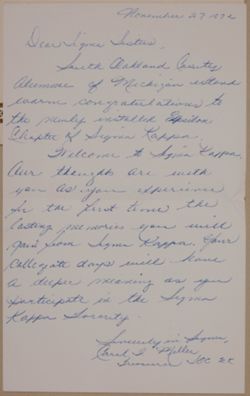 November 27, 1972
Dear Sigma Sisters,
South Oakland County
Alumnae of Michigan extend
warm congratulations to
the newly installed Epsilon
Chapter of Sigma Kappa.
Welcome to Sigma Kappa.
Our thoughts are with
you as you experience
for the first time the
lasting memories you will
gain from Sigma Kappa. Your
collegiate days will have
a deeper meaning as you
participate in the Sigma
Kappa Sorority.
Sincerely in Sigma,
Carol Miller